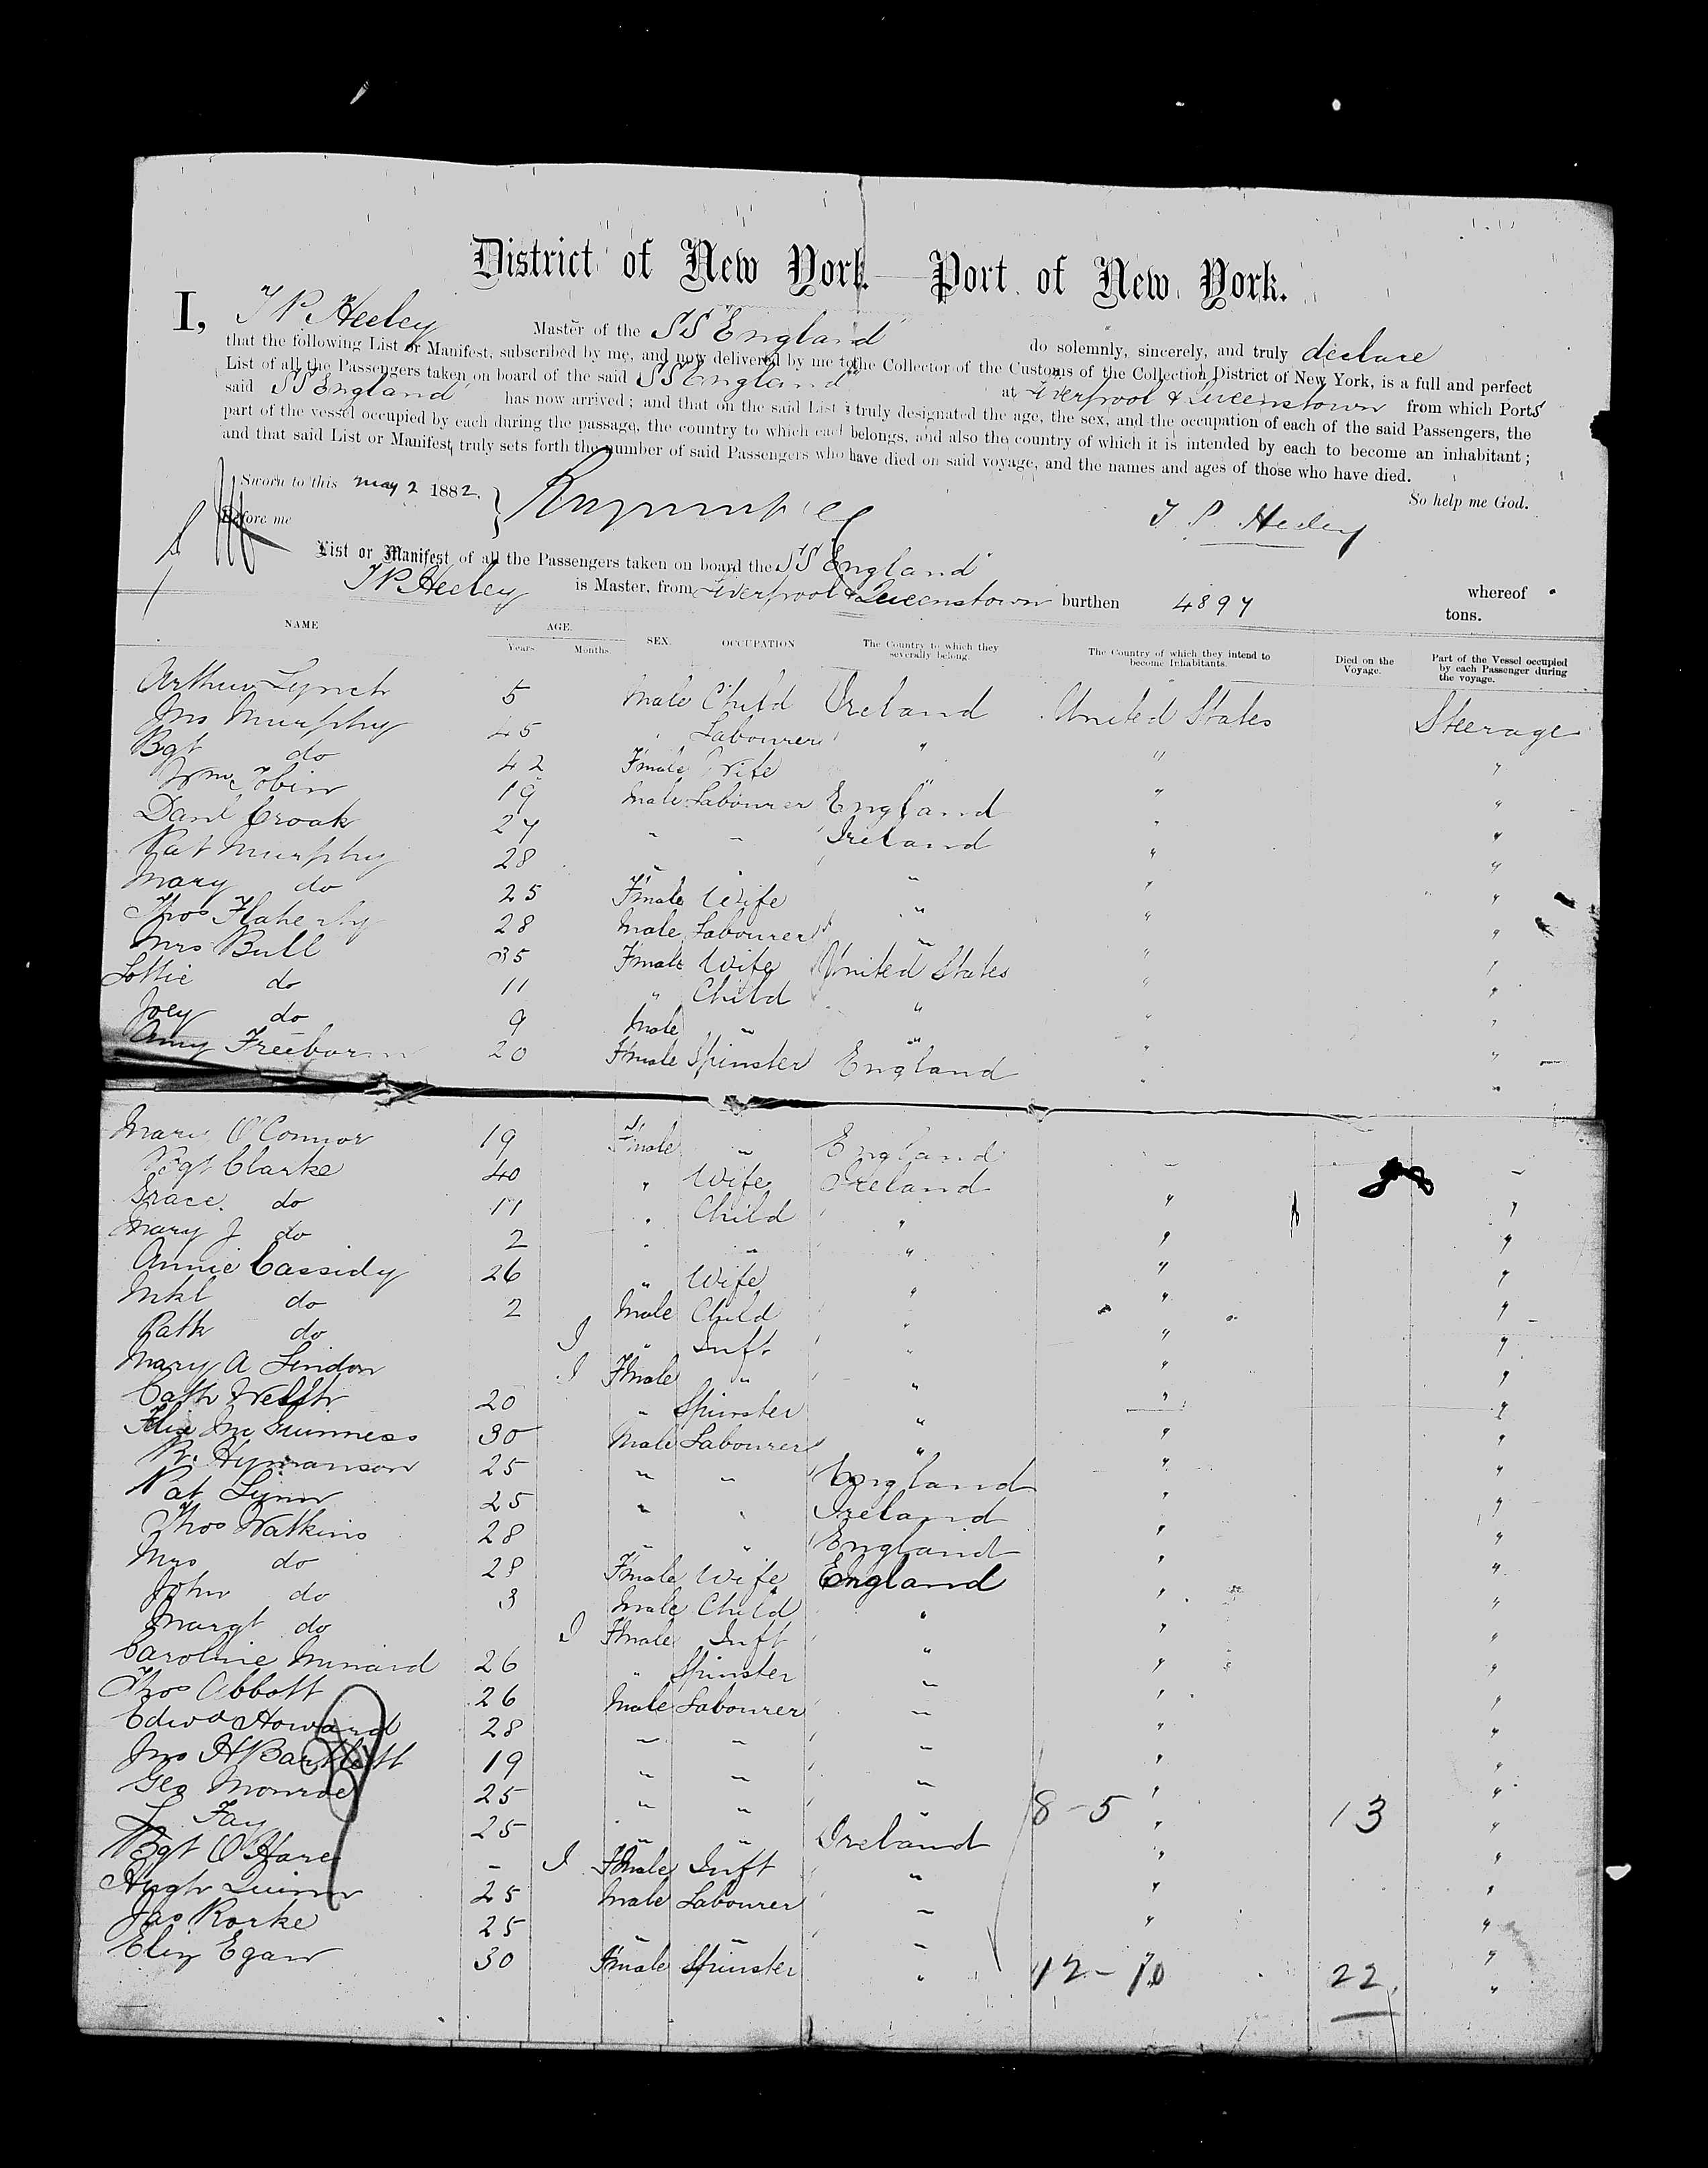 District of New York — Port of New York.
I, T P Heeley Master of the SS England do solemnly, sincerely, and truly declare
that the following List or Manifest, subscribed by me, and now delivered by me to the Collector of the Customs of the Collection District of New York, is a full and perfect
List of all the Passengers taken on board of the said SS England at Liverpool & Queenstown from which Ports
said SS England has now arrived; and that on the said List is truly designated the age, the sex, and the occupation of each of the said Passengers, the
part of the vessel occupied by each during the passage, the country to which each belongs, and also the country of which it is intended by each to become an inhabitant;
and that said List or Manifest truly sets forth the number of said Passengers who have died on said voyage, and the names and ages of those who have died.
So help me God.
Sworn to this may 2 1882.
T. P. Heeley
Before me
List or Manifest of all the Passengers taken on board the SS England whereof
T P Heeley is Master, from Liverpool & Queenstown burthen 4897 tons.
NAME AGE. Years Months. SEX. OCCUPATION The Country to which they severally belong. The Country of which they intend to become Inhabitants. Died on the Voyage. Part of the Vessel occupied by each Passenger during the voyage.
Arthur Lynch 5 Male Child Ireland United States Steerage
Jno Murphy 45 " Labourer " " "
Bgt do 42 Fmale Wife " " "
Wm Tobin 19 Male Labourer England " "
Danl Croak 27 " " Ireland " "
Pat Murphy 28 " " " " "
Mary do 25 Fmale Wife " " "
Thos Flaherty 28 Male Labourer " " "
Mrs Bull 35 Fmale Wife United States " "
Lottie do 11 " Child " " "
Joey do 9 Male " " " "
Amy Freeborn 20 Fmale Spinster England " "
Mary O'Connor 19 Fmale " England " "
Bgt Clarke 40 " Wife Ireland " "
Grace do 11 " Child " " "
Mary J do 2 " " " " "
Annie Cassidy 26 " Wife " " "
Mkl do 2 Male Child " " "
Path do I " Inft " " "
Mary A Lindon I Fmale " " " "
Cath Welsh 20 " Spinster " " "
Felix McGuinness 30 Male Labourer " " "
R. Hymanson 25 " " England " "
Pat Lynn 25 " " Ireland " "
Thos Watkins 28 " " England " "
Mrs do 28 Fmale Wife England " "
John do 3 Male Child " " "
Margt do I Fmale Inft " " "
Caroline Minard 26 " Spinster " " "
Thos Abbott 26 Male Labourer " " "
Edwd Howard 28 " " " " "
Jno H Bartlett 19 " " " " "
Geo Monroe 25 " " " 8-5 " 13 "
L Fay 25 " " Ireland " "
Bgt O'Hare - I Fmale Inft " " "
Hugh Quinn 25 Male Labourer " " "
Jas Rorke 25 " " " " "
Eliz Egan 30 Fmale Spinster " 12-10 22 "